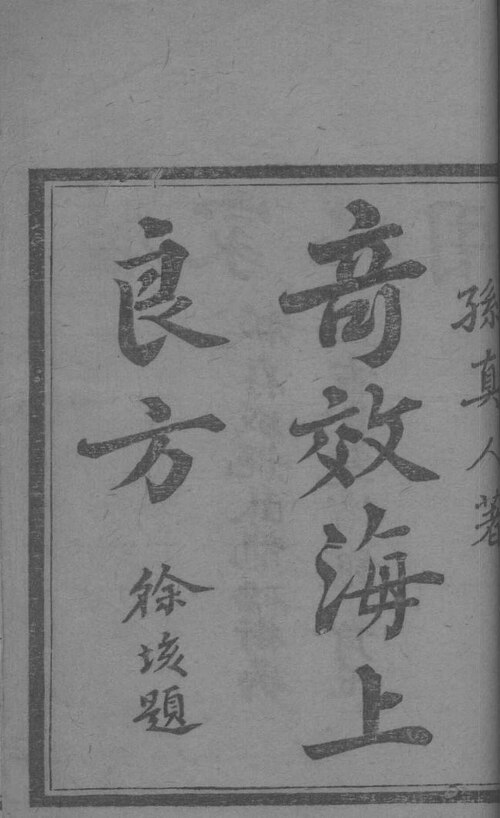 孫真人著
奇效海上
良方
徐垓題